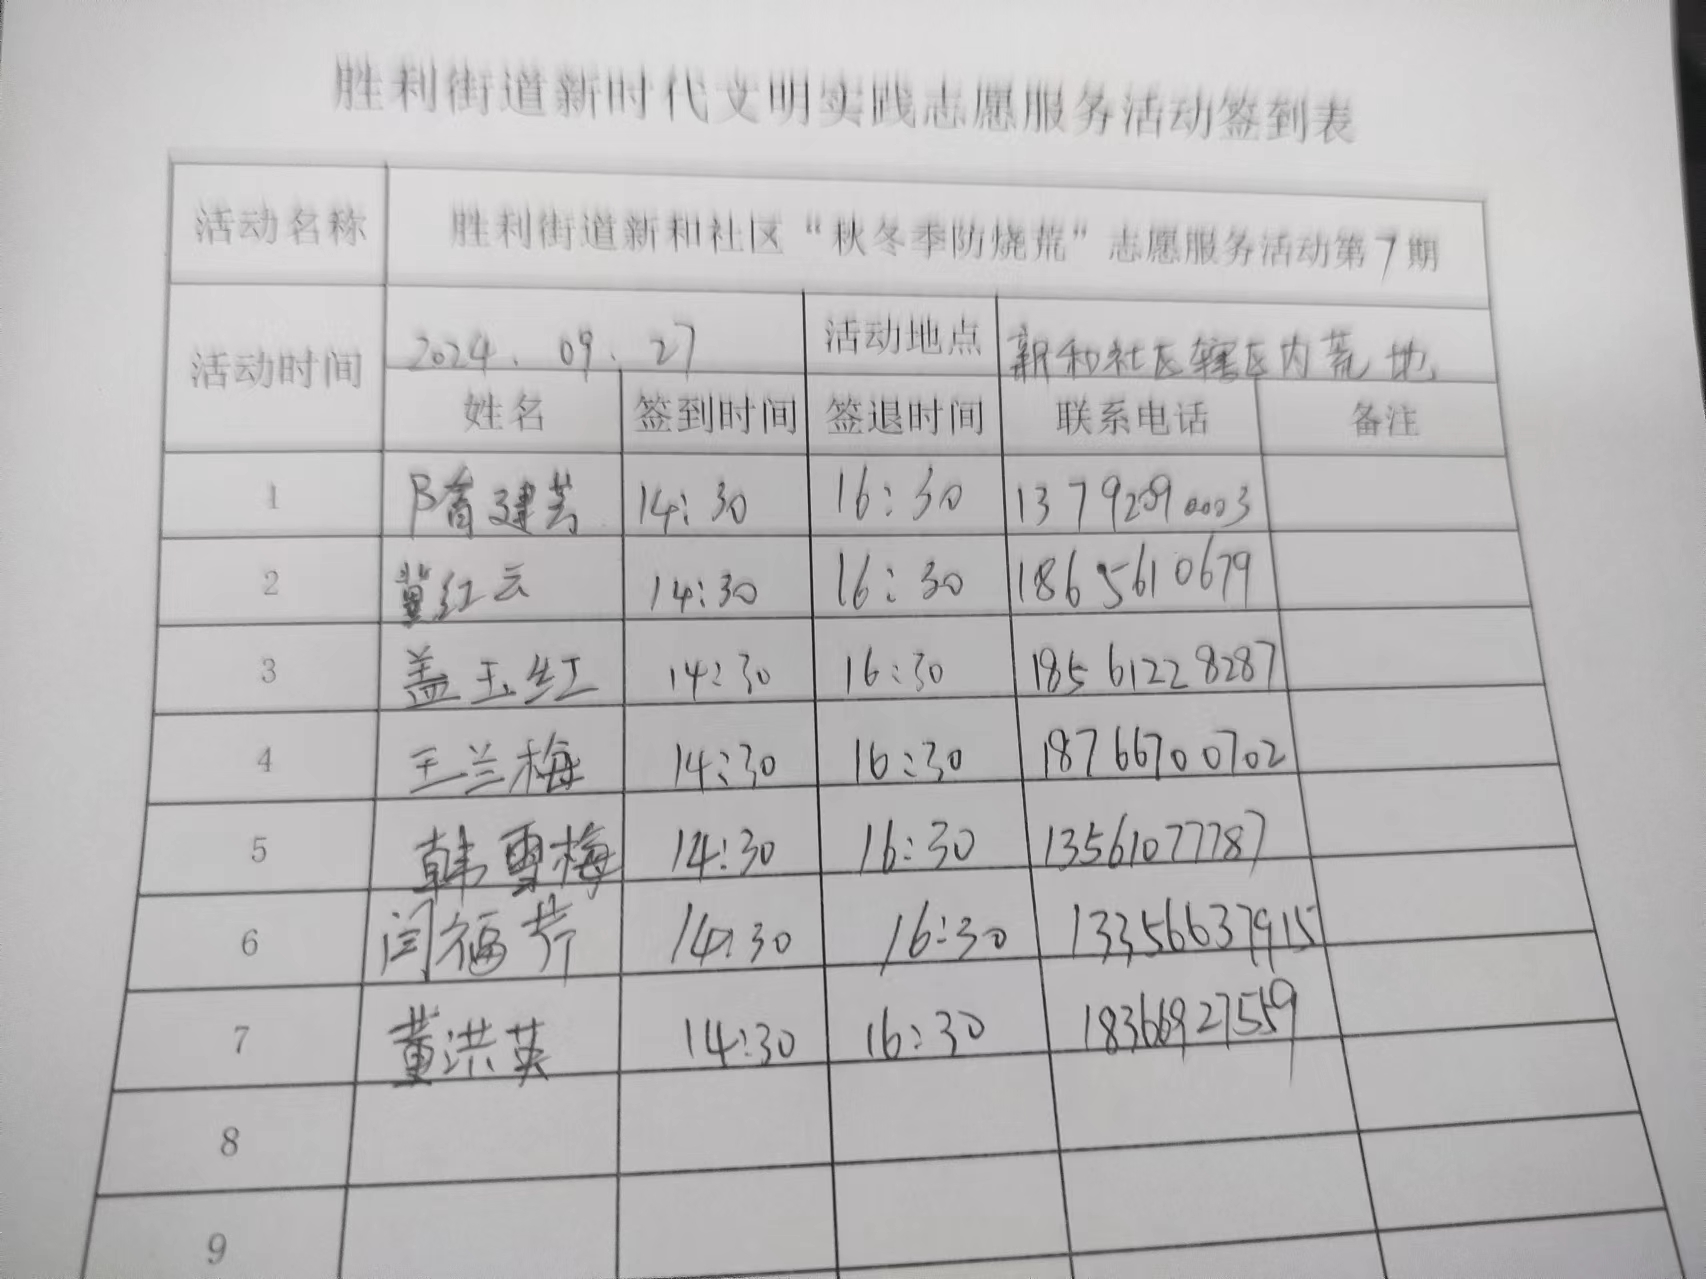 胜利街道新时代文明实践志愿服务活动签到表
活动名称 胜利街道新和社区“秋冬季防烧荒”志愿服务活动第7期
活动时间 2024.09.27 活动地点 新和社区辖区内荒地
姓名 签到时间 签退时间 联系电话 备注
1 建芸 14:30 16:30 13792090003
2 冀红云 14:30 16:30 1865610679
3 盖玉红 14:30 16:30 18561228287
4 王兰梅 14:30 16:30 18766700702
5 韩雪梅 14:30 16:30 13561077787
6 闫福芹 14:30 16:30 13356637915
7 董洪英 14:30 16:30 18366927559
8
9